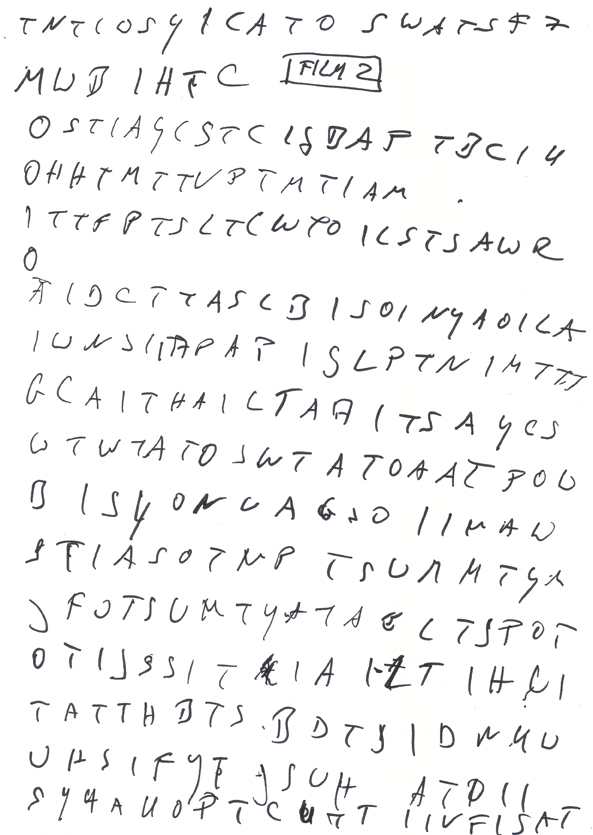 TNTIOSY ICATO SWATSFZ
MWB IHTC FILM 2
OSTIAYCSTC ISBAP TBCIU
OHHTMTTVPTMTIAM .
ITTFPTSLTCWTO ILSTSAWR
O
AIDCTTASCBISOINYAOICA
IWNSIIAPAP ISLPTNIMTTT
GCAITHAICTAAITSAYCS
WTWTATOSWTATOAATPOU
BISYONCAGSO IIMAW
STIASOTNP TSURMTYA
JFOTSUMTYATA CTSPOT
OTIJSSIT IA TIHCI
TATTHBTS.BDTSIDNMU
UHSIFYT JSUH ATDII
SYYAUOPTC TT IIVFISAT